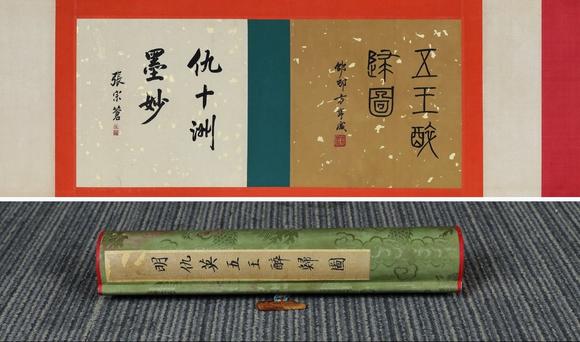 五王醉
歸圖
仇十洲
墨妙
張宗蒼
明仇英五王醉歸圖